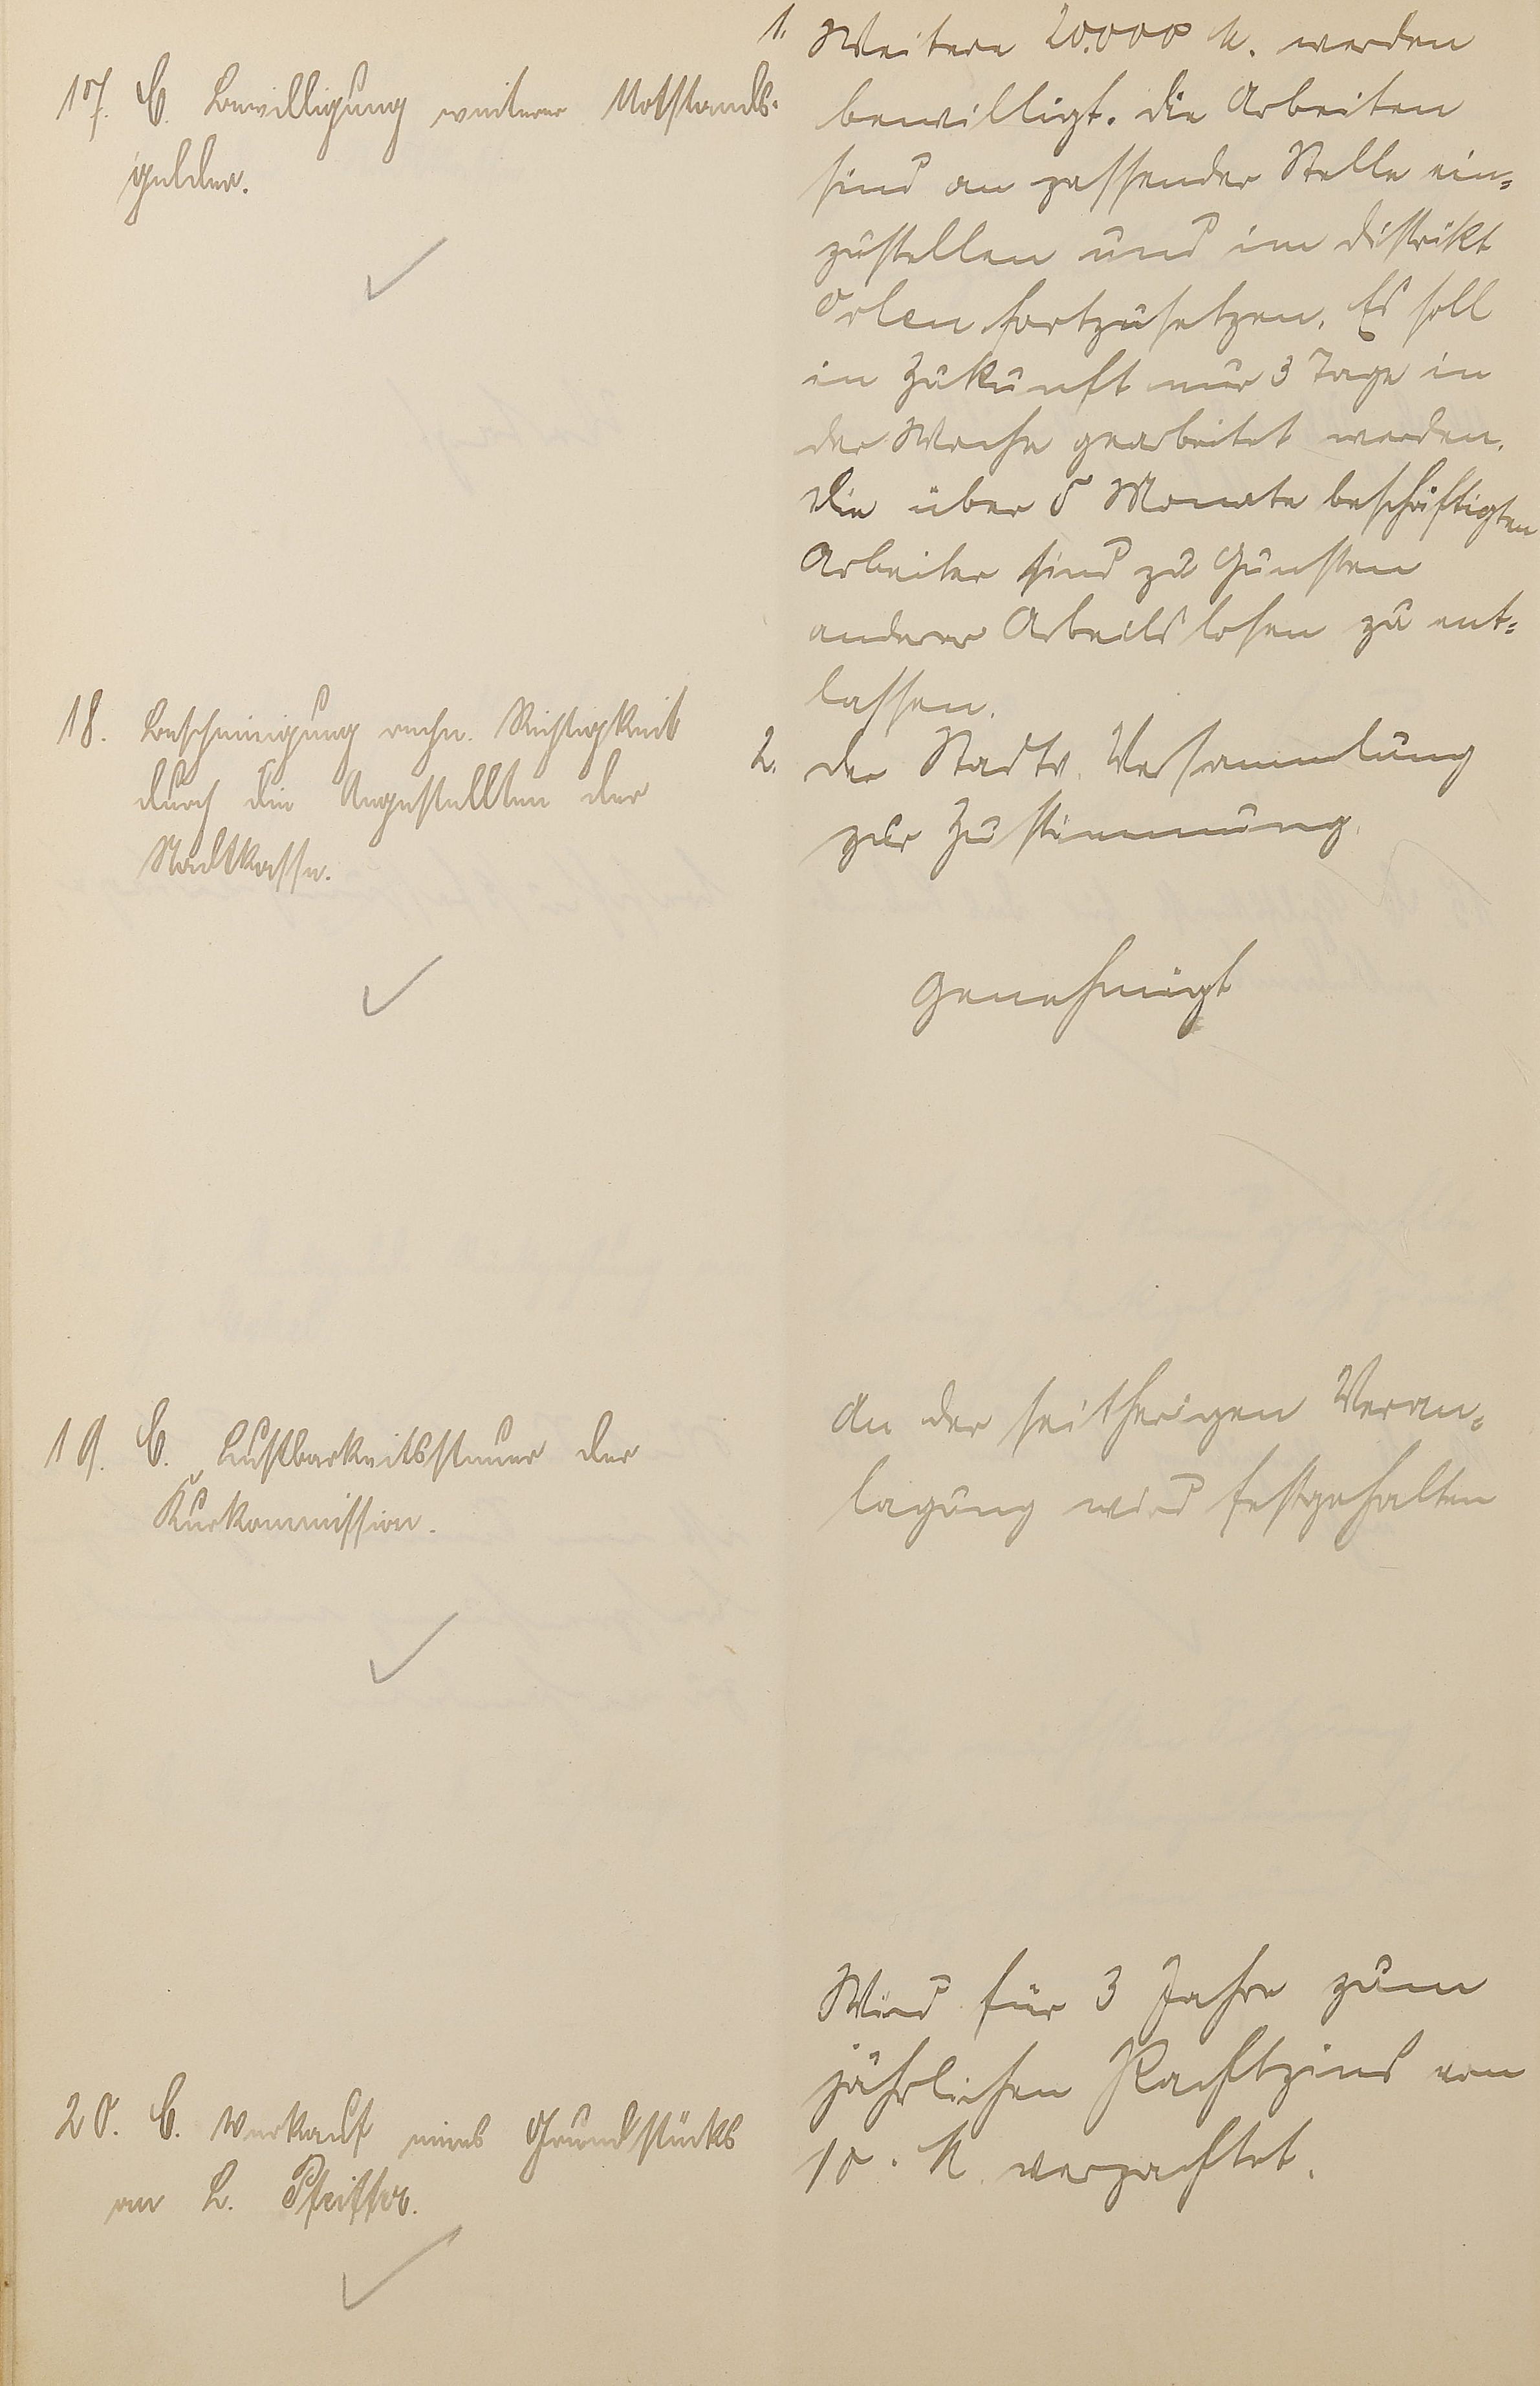 17. C. Bewilligung weiterer Notstands-
gelder.
1. Weitere 20.000 M. werden
bewilligt. die Arbeiten
sind an passender Stelle ein-
zustellen und im Distrikt
Orlen fortzusetzen. Es soll
in Zukunft nur 3 Tage in
der Woche gearbeitet werden.
Die über 5 Monate beschäftigten
Arbeiter sind zu Gunsten
anderer Arbeitslosen zu ent-
lassen.
2. der Stadtv. Versammlung
zur Zustimmung.
18. Bescheinigung rechn. Richtigkeit
durch die Angestellten der
Stadtkasse.
genehmigt
19. C. Lustbarkeitssteuer der
Kurkommission.
An der seitherigen Veran-
lagung wird festgehalten
20. C. Verkauf eines Grundstücks
an L. Pfeiffer.
Wird für 3 Jahre zum
jährlichen Pachtzins von
10. M. verpachtet.